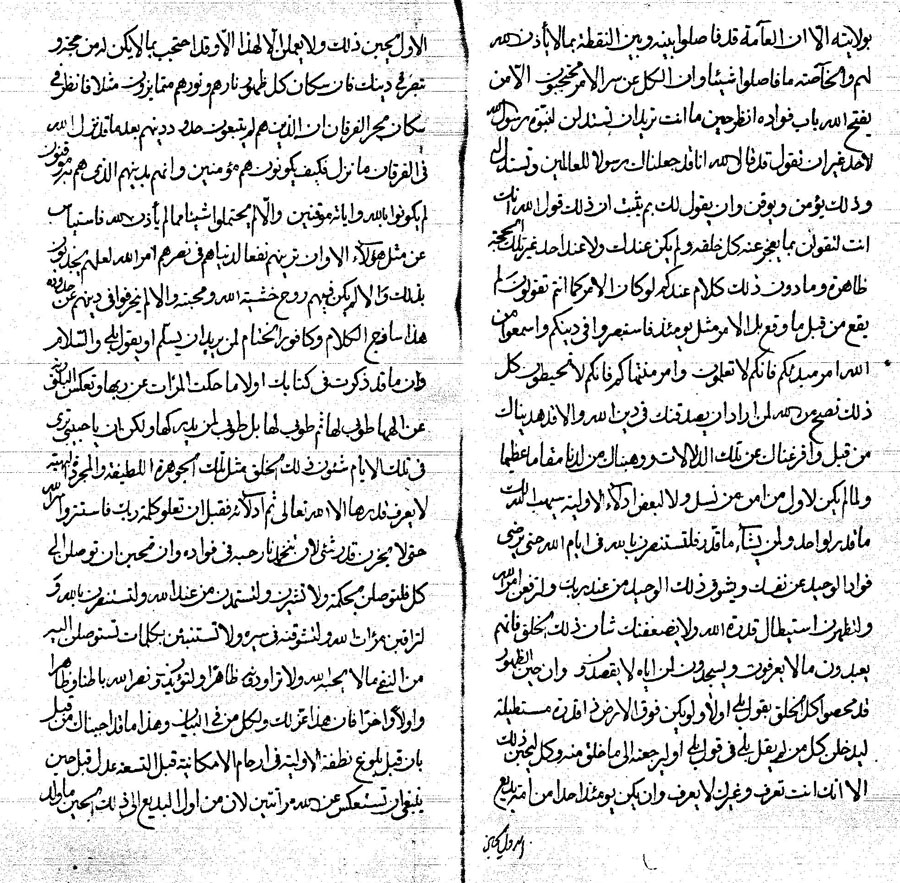 بولايته الا ان العامة قد فاصلوا بينه وبين النقطة بما لا يأذن الله
لهم والخاصة ما فاصلوا شيئا وان الكل عن سر الامر محتجبون الا من
يفتح الله باب فواده انظر حين ما انت تريد ان تستدلن لنبوة رسول الله
لاحد غير ان تقول قد قال الله انا قد جعلناك رسولا للعالمين وتستدل
وذلك يؤمن ويوقن وان يقول لك بم يثبت ان ذلك قول الله انك
انت لتقولن بما يعجز عنه كل خلقه ولم يكن عندك ولا عند احد غير تلك الحجة
ظاهرة وما دون ذلك كلام عندكم لو كان الامر كما انتم تقولون لم
يقع من قبل ما وقع بل الامر مثل يومئذ فاستبصروا في دينكم واسمعوا من
الله امر مبدئكم فانكم لا تعلمون وامر منتهاكم فانكم لا تحيطون كل
ذلك نصح من الله لمن اراد ان يصدقنك في دين الله والا قد هديناك
من قبل وافرغناك عن تلك الدلالات ووهبناك من لدنا مقاما عظيما
ولما لم يكن لاول من امن من نسل ولا لبعض ادلاء الاولية سيهب الله لك
ما قدر لواحد ولمن يشاء ما قد فلتستنصرن بالله في ايام الله حتى يرضى
فواد الوحيد عن نفسك ويشوق ذلك الوحيد من عند ربك ولترفعن امر الله
ولتظهرن استبطال قدرة الله ولا يضعفنك شأن ذلك الخلق فانهم
يعبدون ما لا يعرفون ويسجدون لمن اياه لا يقصدون وان حين الظهور
قد محصوا كل الخلق بقول بلى اولا ولو يكن فوق الارض ذا قدرة مستطيلة
ليدخلن كل من لم يقل بلى في قول بلى او ليرجعنه الى ما خلق منه وكل ليحبن ذلك
الا انك انت تعرف وغيرك لا يعرف وان يكن يومئذ احدا من امة بديع
الاول يحبن
الاول يحبن ذلك ولا يعملن الا لهذا الا وقد احتجب بما لا يكن له من محبة و
تصرف في دينك فان سكان كل ظهور نارهم ونورهم مثل ما بزون مثلا فانظر في
سكان بحر الفرقان ان الذين هم لم يتبعون حدود دينهم بعد ما قد نزل الله
في الفرقان ما نزل فكيف يكونون هم مؤمنين وانهم بدينهم الذي هم به يعرفون
لم يكونوا بالله واياته موقنين والا لم يحتملوا شيئا مما لم يأذن الله فاستيأس
عن مثل هؤلاء الا وان ترينهم نفعا لدنياهم في نصرهم امر الله لعلهم يجذبون
بذلك والا لم يكن فيهم روح خشية الله ومحبته والا لم ينحرفوا في دينهم عن حدوده
هذا ساذج الكلام وكافور الختام لمن يريد ان يسلم او يقول بلى والسلام
وان ما قد ذكرت في كتابك اولا ما حكت المرآت عن ربها وتعكس البلورة
عن الهها طوبى لها ثم طوبى لها بل طوبى لمن يدركها ولكن ان يا حبيبي ترى
في تلك الايام شئون ذلك الخلق مثل تلك الجوهرة اللطيفة والمجردة الالهية
لا يعرف قدرها الا الله تعالى ثم ادلائه فقبل ان تعلو كلمة ربك فاستتروا امر الله
حتى لا يحزن قدر شئ لان تنخمد نار حبه في فواده وان تحبن ان توصلن الى
كل فلتوصلن بحكمة ولا تشيرن ولتستمدن من عند الله ولتستنصرن بالله و
لتراقبن مرآت الله ولتشوقنه في سيره ولا تستنبئن بكلمات تستوصلن اليه
من النفي ما لا يحبه الله ولا تراودن ظاهرا ولتؤيدنه بنصر الله باطنا وظاهرا
واولا واخرا فان هذا عز لك ولكل من في البيان وهذا ما قد اجبناك من قبل
بان قبل بلوغ نطفة الاولية في ارحام الامكانية قبل التسعة عدل قبل حين
ينبغي ان تستعكس عن الله مرآتين لان من اول البديع الى ذلك الحين ما ولد